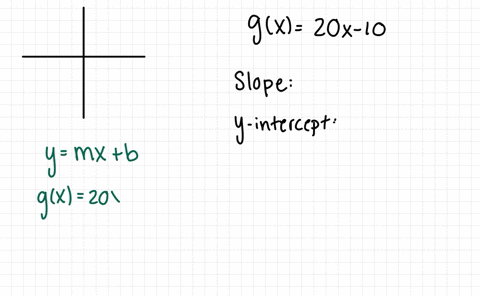 g(x) = 20x-10
Slope:
y-intercept:
y = mx + b
g(x) = 20\